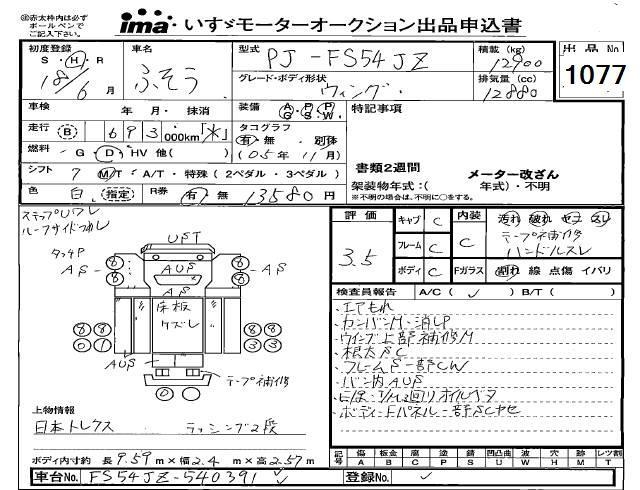 ㊟赤太枠内は必ず
ボールペンで
ご記入下さい。
ima いすゞモーターオークション出品申込書
初度登録 S・H・R 18/6月
車名 ふそう
型式 PJ-FS54JZ
積載(kg) 12900
出品No 1077
グレード・ボディ形状 ウィング
排気量(cc) 12880
車検 年 月・ 抹消
装備 A/G・P/S・P/W
特記事項
走行 B 693,000km「*」
タコグラフ 有・無 別体 (05年11月)
燃料 G・D・HV 他( )
書類2週間 メーター改ざん
シフト 7 M/T・A/T・特殊(2ペダル・3ペダル)
架装物年式:( 年式)・不明
※不明の場合は、不明に○をする。
色 白 指定 R券 有・無 13580円
ステップUワレ
ルーフサイドつぶし
評価 3.5
キャブ C
フレーム C
ボディ C
内装 C
汚れ 破れ セコ スレ
テープ補修
ハンドルスレ
Fガラス 割れ 線 点傷 イバリ
検査員報告 A/C( ✓ ) B/T( )
タッチP
UPT
AS
AUS
AS
AS
床板
ズレ
8 8 8 8
8 8 8 3
0 1 3 3
AUS
テープ補修
0 0
・エアもれ
・カンバンM・消しP
・ウイング上部補修M
・根太SC
・フレームS一部CW
・バン内AUS
・ボディーFパネル一部SCヤセ
上物情報
日本トレクス ラッシング2段
ボディ内寸約 長 9.59m×幅2.4m×高2.57m
記号 傷A 板金B 腐C 塗P 錆S 凹凸曲U 波W 穴H 跡M レツ割T
車台No. FS54JZ-540391
登録No.